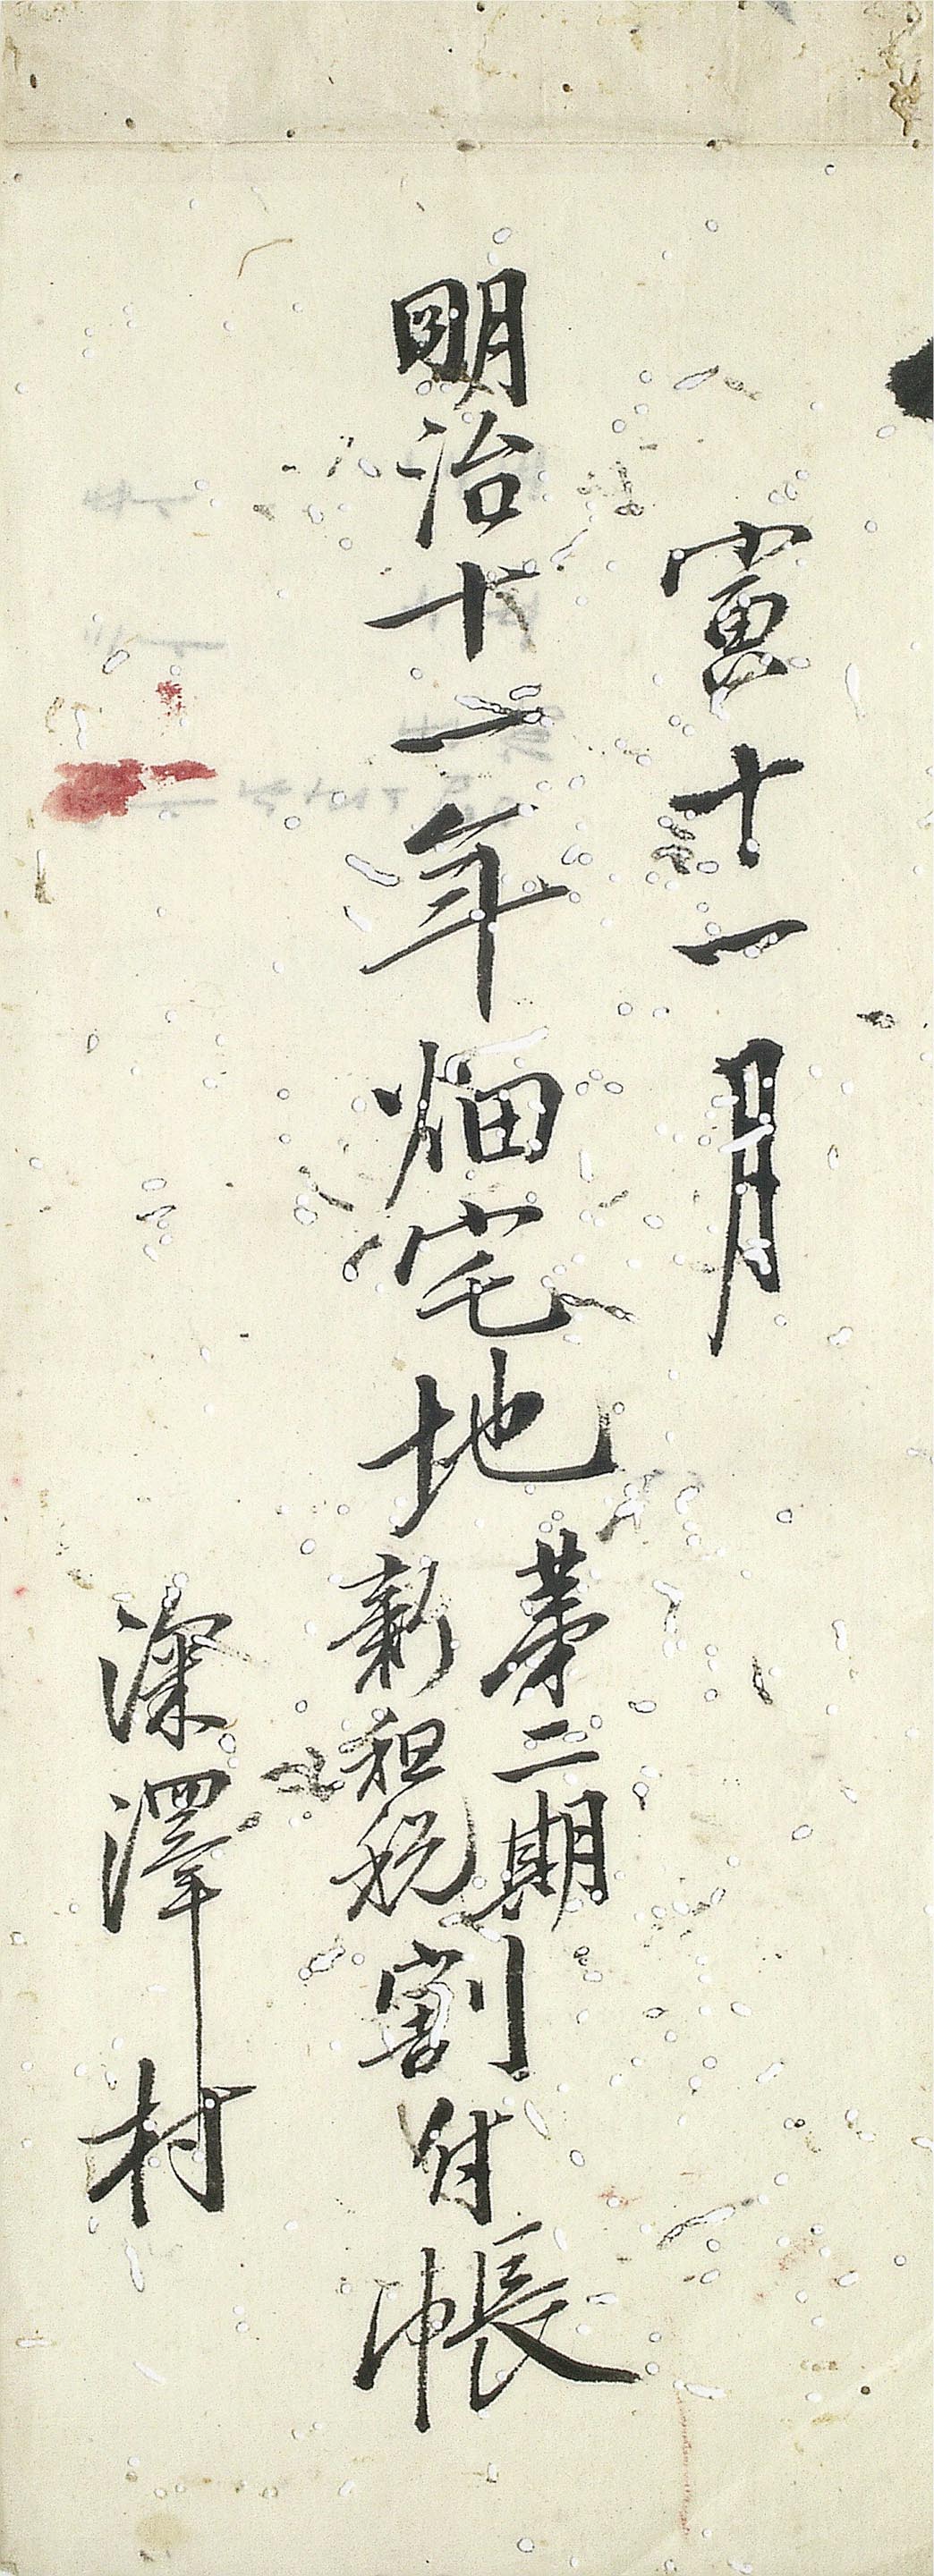 寅十一月
明治十一年畑宅地
第二期
新租税
割付帳
深澤村